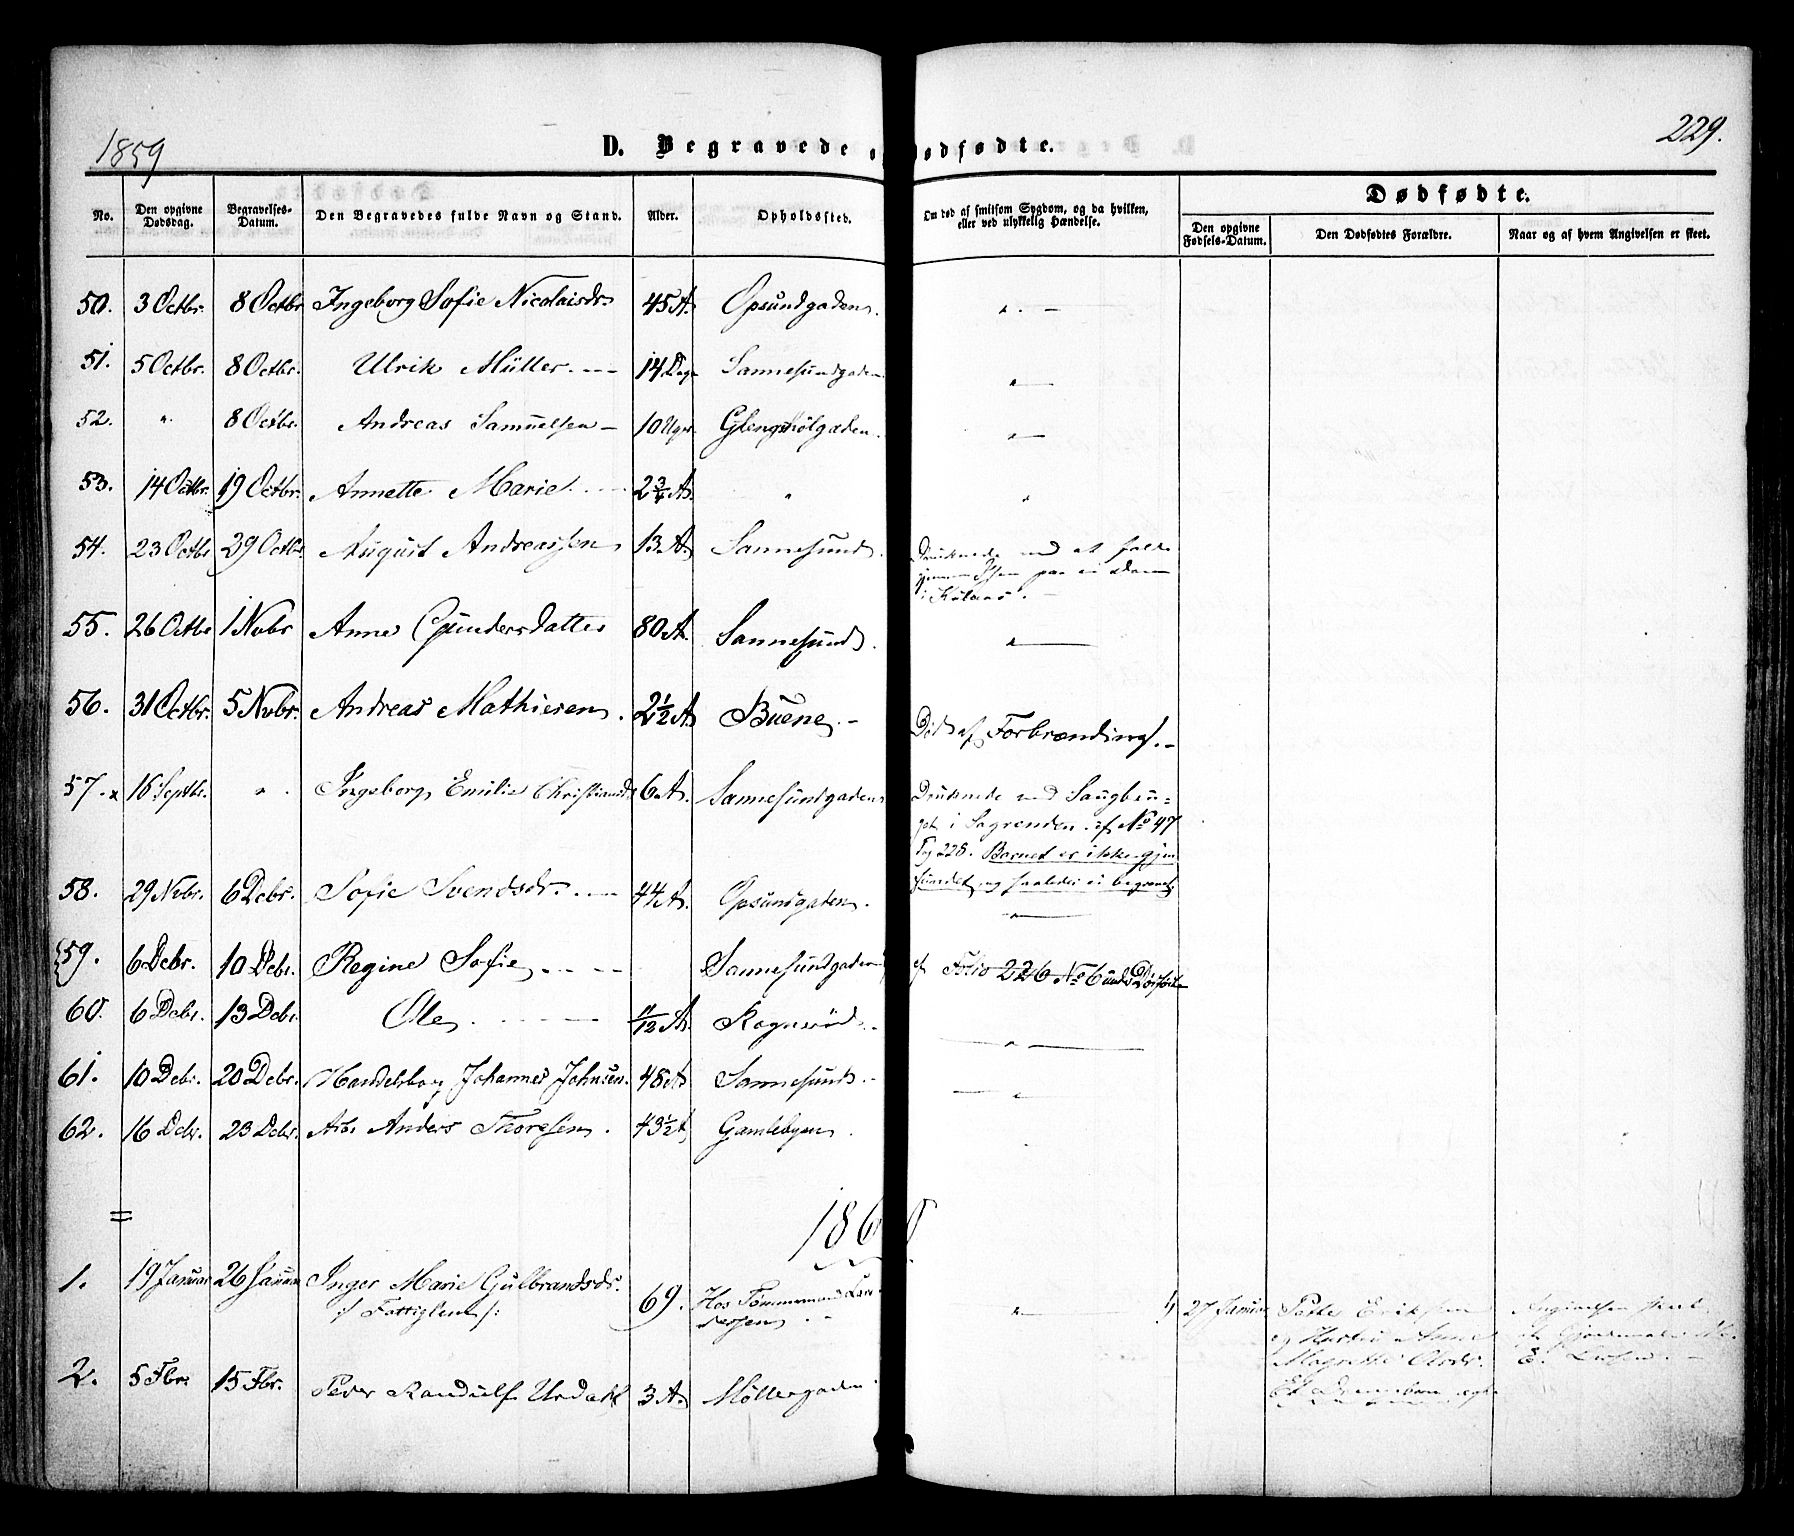 1859
D. Begravede o
ødfødte.
229.
No.
Den opgivne Dødsdag.
Begravelses-Datum.
Den Begravedes fulde Navn og Stand.
Alder.
Opholdssted.
Om død af smitsom Sygdom, og da hvilken, eller ved ulykkelig Hændelse.
Dødfødte.
Den opgivne Fødsels-Datum.
Den Dødfødtes Forældre.
Naar og af hvem Angivelsen er skeet.
50. 3 Octbr. 8 Octbr Ingeborg Sofie Nicolaisdr. 45 A. Opsundgaden. " . —
51. 5 Octbr. 8 Octbr. Ulrik Müller. — 14 Dage Sannesundgaden "—
52. " 8 Octbr. Andreas Samuelsen — 10 Uger Glengshølgaden. "—
53. 14 Octbr. 19 Octbr. Annette Marie. 2 3/4 A. " "
54. 23 Octbr 29 Octbr. August Andreassen 13 A. Sannesund. Druknede ved at falde
gjennem Isen paa en Dam
i Kulaas. —
55. 26 Octbr 1 Nvbr Anne Gundersdatter 80 A. Sannesund. "—
56. 31 Octbr. 5 Nvbr. Andreas Mathiesen. 2 1/2 A Buene. — Død af Forbrænding. —
57. x 16 Septbr. " . Ingeborg Emilie Christiansd. 6 A. Sannesundgaden Druknede ved Saugbru=
get i Sagrenden. cf No 47
Pag 228. Barnet er ikke gjen
fundet og saaledes ei begravet.
58. 29 Nvbr. 6 Debr. Sofie Svendsdr. — 44 A. Opsundgaden. "—
59. 6 Debr. 10 Debr. Regine Sofie. — Sannesundgaden cf Folio 226 No 6 under Dødfødte
60. 6 Debr. 13 Debr. Ole. — 11/12 A. Rognerød. — "—
61. 10 Debr. 20 Debr. Handelsborg. Johannes Johnsen. 48 A Sannesund. — — " —
62. 16 Debr. 23 Debr. Arb. Anders Thoresen. 43 1/2 A Gamlebyen.
=
1860
1. 19 Januar 26 Januar Inger Marie Gulbrandsdr. 69. Hos Tømmermand Lar
:/ Fattiglem /: dersen. "— 1) 27 Januar Peder Eriksen Angivelsen skeet
og Hustru Anne af Gjordemoder M.
Magrethe Olsdr. E. Larsen. —
Et Drengebarn ægte
2. 5 Fbr. 15 Fbr. Peder Randulf Urdahl 3 A. Møllergaden